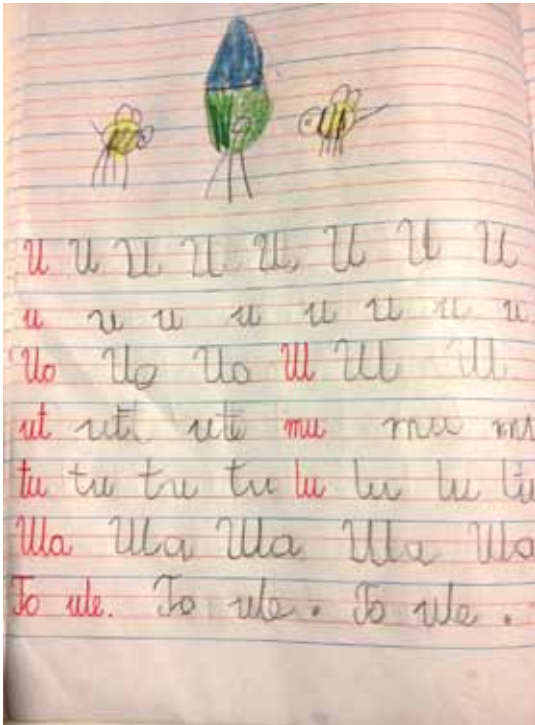 U U U U U U U U
u u u u u u u u
Uo Uo Uo Ul Ul Ul
ut ut ut mu mu mu
tu tu tu tu lu lu lu lu
Ula Ula Ula Ula Ula
To ule. To ule. To ule.